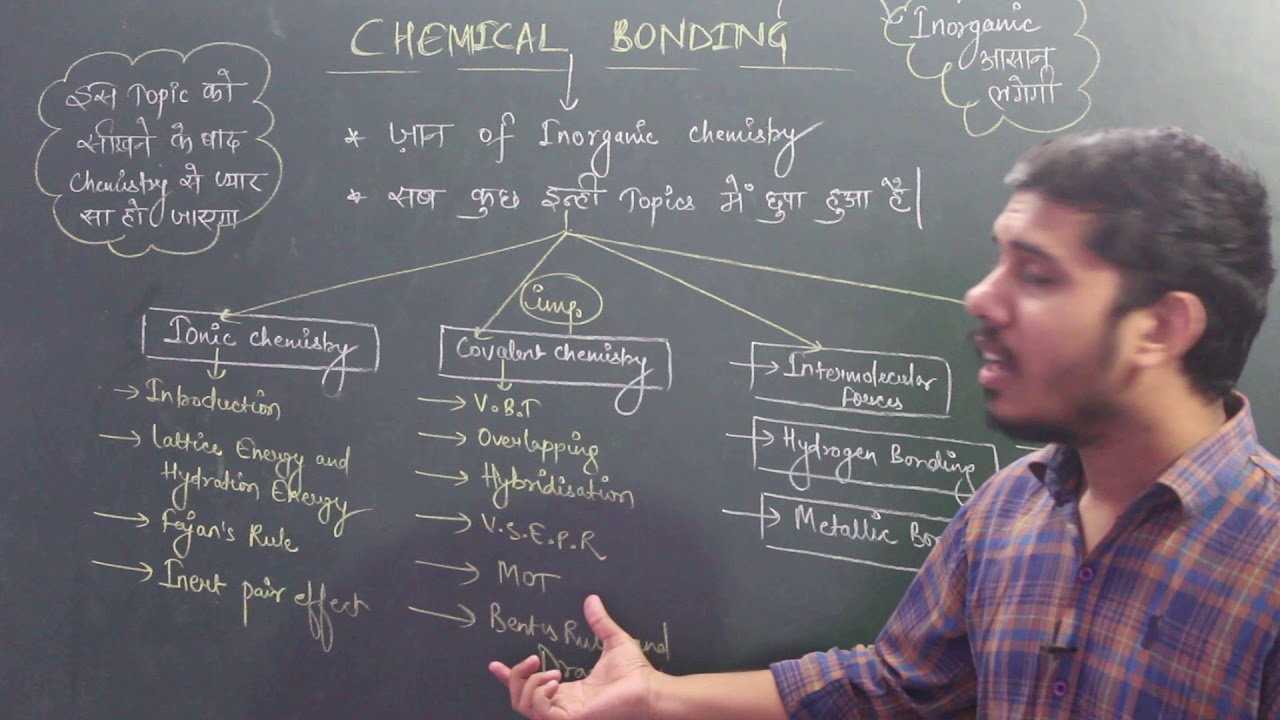 CHEMICAL BONDING
Inorganic
आसान
लगेगी
इस Topic को
सीखने के बाद
Chemistry से प्यार
सा हो जाएगा
* ज़ान of Inorganic chemistry
* सब कुछ इन्ही Topics में छुपा हुआ है|
imp.
Ionic chemistry
→ Introduction
→ Lattice Energy and
Hydration Energy
→ Fajan's Rule
→ Inert pair effect
Covalent chemistry
→ V.B.T
→ Overlapping
→ Hybridisation
→ V.S.E.P.R
→ MOT
→ Bent's Rule and
→ Intermolecular
forces
→ Hydrogen Bonding
→ Metallic